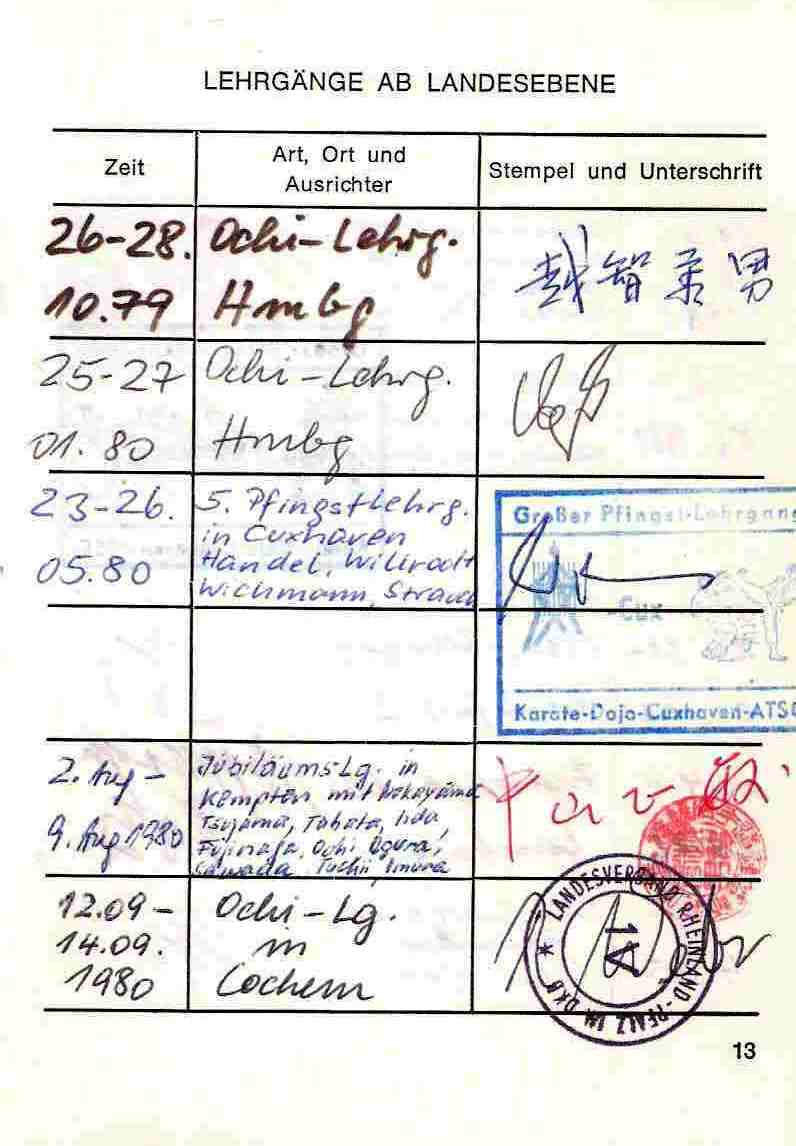 LEHRGÄNGE AB LANDESEBENE
Zeit
Art, Ort und
Ausrichter
Stempel und Unterschrift
26-28.
10.79
Ochi-Lehrg.
Hmbg
越智秀男
25-27
01. 80
Ochi-Lehrg.
Hmbg
23-26.
05.80
5. Pfingstlehrg.
in Cuxhaven
Handel, Willrodt
Wichmann, Strauch
Großer Pfingst-Lehrgang
-Cux
Karate-Dojo-Cuxhaven-ATS
2. Aug -
9. Aug 1980
Jubiläumslg. in
Kempten mit Nakayama
Tsujama, Tabata, Iida
Fujinaga, Ochi, Ogura,
Sawada, Tuchii, Imura
12.09 -
14.09.
1980
Ochi-Lg.
in
Cochem
LANDESVERBAND RHEINLAND-PFALZ IM DKB
13